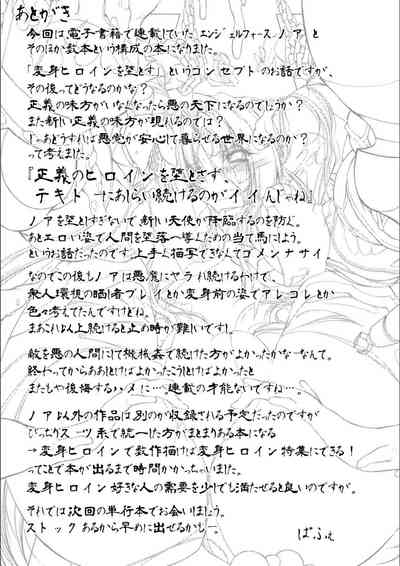 あとがき
今回は電子書籍で連載していたエンジェルフォース ノアと
そのほか数本という構成の本になりました。
「変身ヒロインを堕とす」というコンセプトのお話ですが、
その後ってどうなるのかな？
正義の味方がいなくなったら悪の天下になるのでしょうか？
また新しい正義の味方が現れるのでは？
じゃあどうすれば悪党が安心して暮らせる世界になるのか？
って考えました。
『正義のヒロインを堕とさず、
テキトーにあしらい続けるのがイイんじゃね』
ノアを堕としすぎないで新しい天使が降臨するのを防ぐ。
あとエロい姿で人間を堕落へ導くための当て馬にしよう。
というお話だったのです。上手く描写できなくてゴメンナサイ。
なのでこの後もノアは悪魔にヤラれ続けるわけで、
衆人環視の晒し者プレイとか変身前の姿でアレコレとか
色々考えてたんですけどね。
まあこれ以上続けると止め時が難しいですし。
敵を悪の人間にして機械姦で続けた方がよかったかなーなんて。
終わってからああすればよかったこうすればよかったと
またしても後悔するハメに…連載の才能ないですね…。
ノア以外の作品は別のが収録される予定だったのですが
ぴっちりスーツ系で統一した方がまとまりある本になる
→変身ヒロインで数作描けば変身ヒロイン特集にできる！
ってことで本が出るまで時間かかっちゃいました。
変身ヒロイン好きな人の需要を少しでも満たせると良いのですが。
それでは次回の単行本でお会いしましょう。
ストックあるから早めに出せるかもー。
ぱふぇ